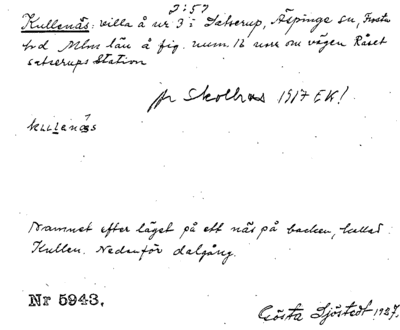 2:57
Kullenås: villa å nr 3 i Satserup, Äspinge sn, Frosta
hd Mlm län å fig. num. 16 norr om vägen
satserups Station
Skolhus 1917 EK!
kullenås
Namnet efter läget på ett nås på backen, kallad
Kullen. Nedanför dalgång.
Nr 5943.
Gösta Sjöstedt 1927.